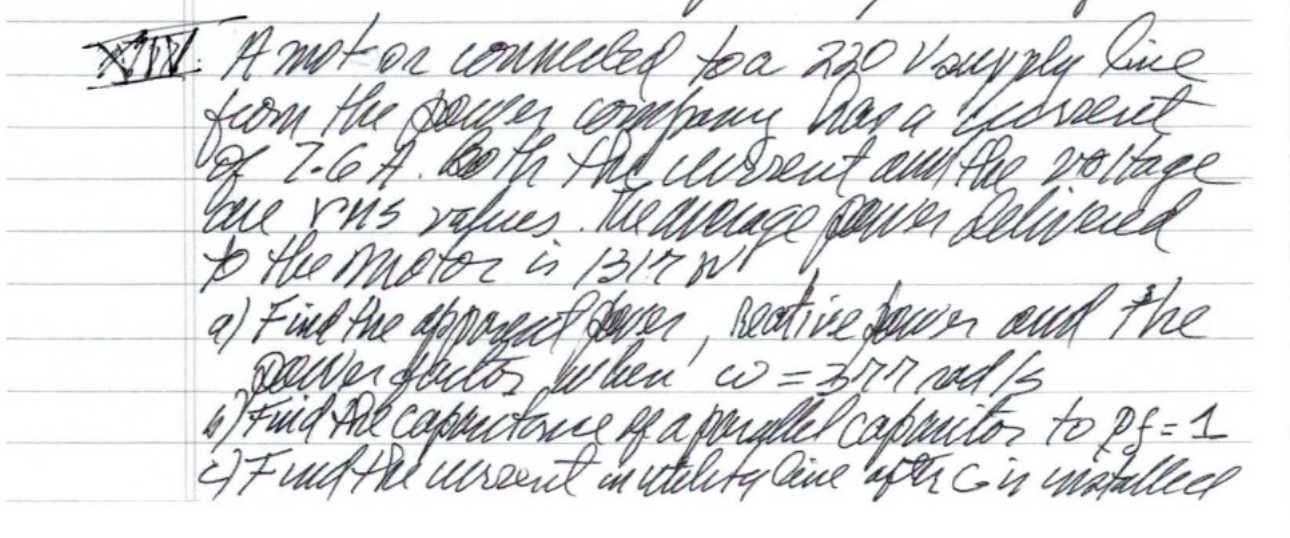 XIV. A motor connected to a 220 V supply line
from the power company has a current
of 7.6 A. Both the current and the voltage
are rms values. The average power delivered
to the motor is 1317 W
a) Find the apparent power, reative power and the
power factor when ω = 377 rad/s
b) Find the capacitance of a parallel capacitor to pf = 1
c) Find the current in utility line after C is installed